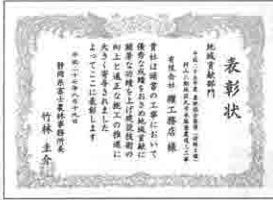 表彰状
地域貢献部門
有限会社 櫂工務店 様
貴社は頭書の工事において
優秀な成績をおさめ地域貢献に
顕著な功績を上げ建設技術の
向上と適正な施工の推進に
大きく寄与されました
よってここに表彰します
平成二十七年八月十九日
静岡県富士農林事務所長
竹林 圭介